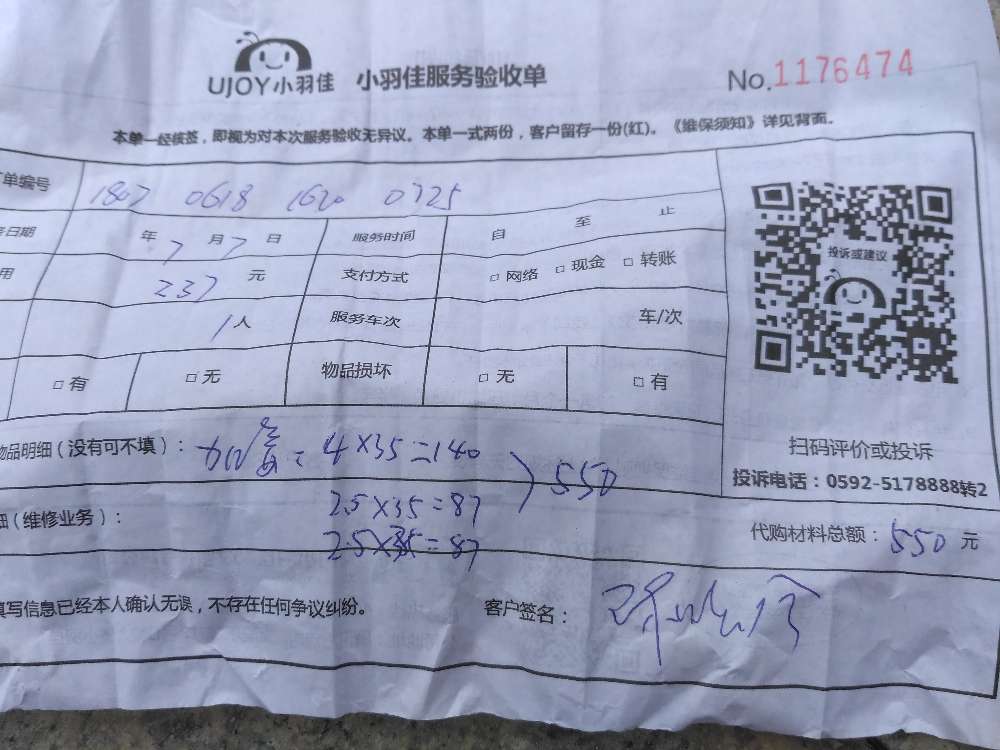 UJOY小羽佳 小羽佳服务验收单 No.1176474
本单一经核签，即视为对本次服务验收无异议。本单一式两份，客户留存一份(红)。《维保须知》详见背面。
单编号 1807 0618 1620 0725
日期 年 7 月 7 日 服务时间 自 至 止
用 237 元 支付方式 □ 网络 □ 现金 □ 转账
1人 服务车次 车/次
□ 有 □ 无 物品损坏 □ 无 □ 有
投诉或建议
扫码评价或投诉
投诉电话：0592-5178888转2
物品明细（没有可不填）： 4×35=140
2.5×35=87
2.5×35=87
550
细（维修业务）：
代购材料总额：550 元
填写信息已经本人确认无误，不存在任何争议纠纷。 客户签名：